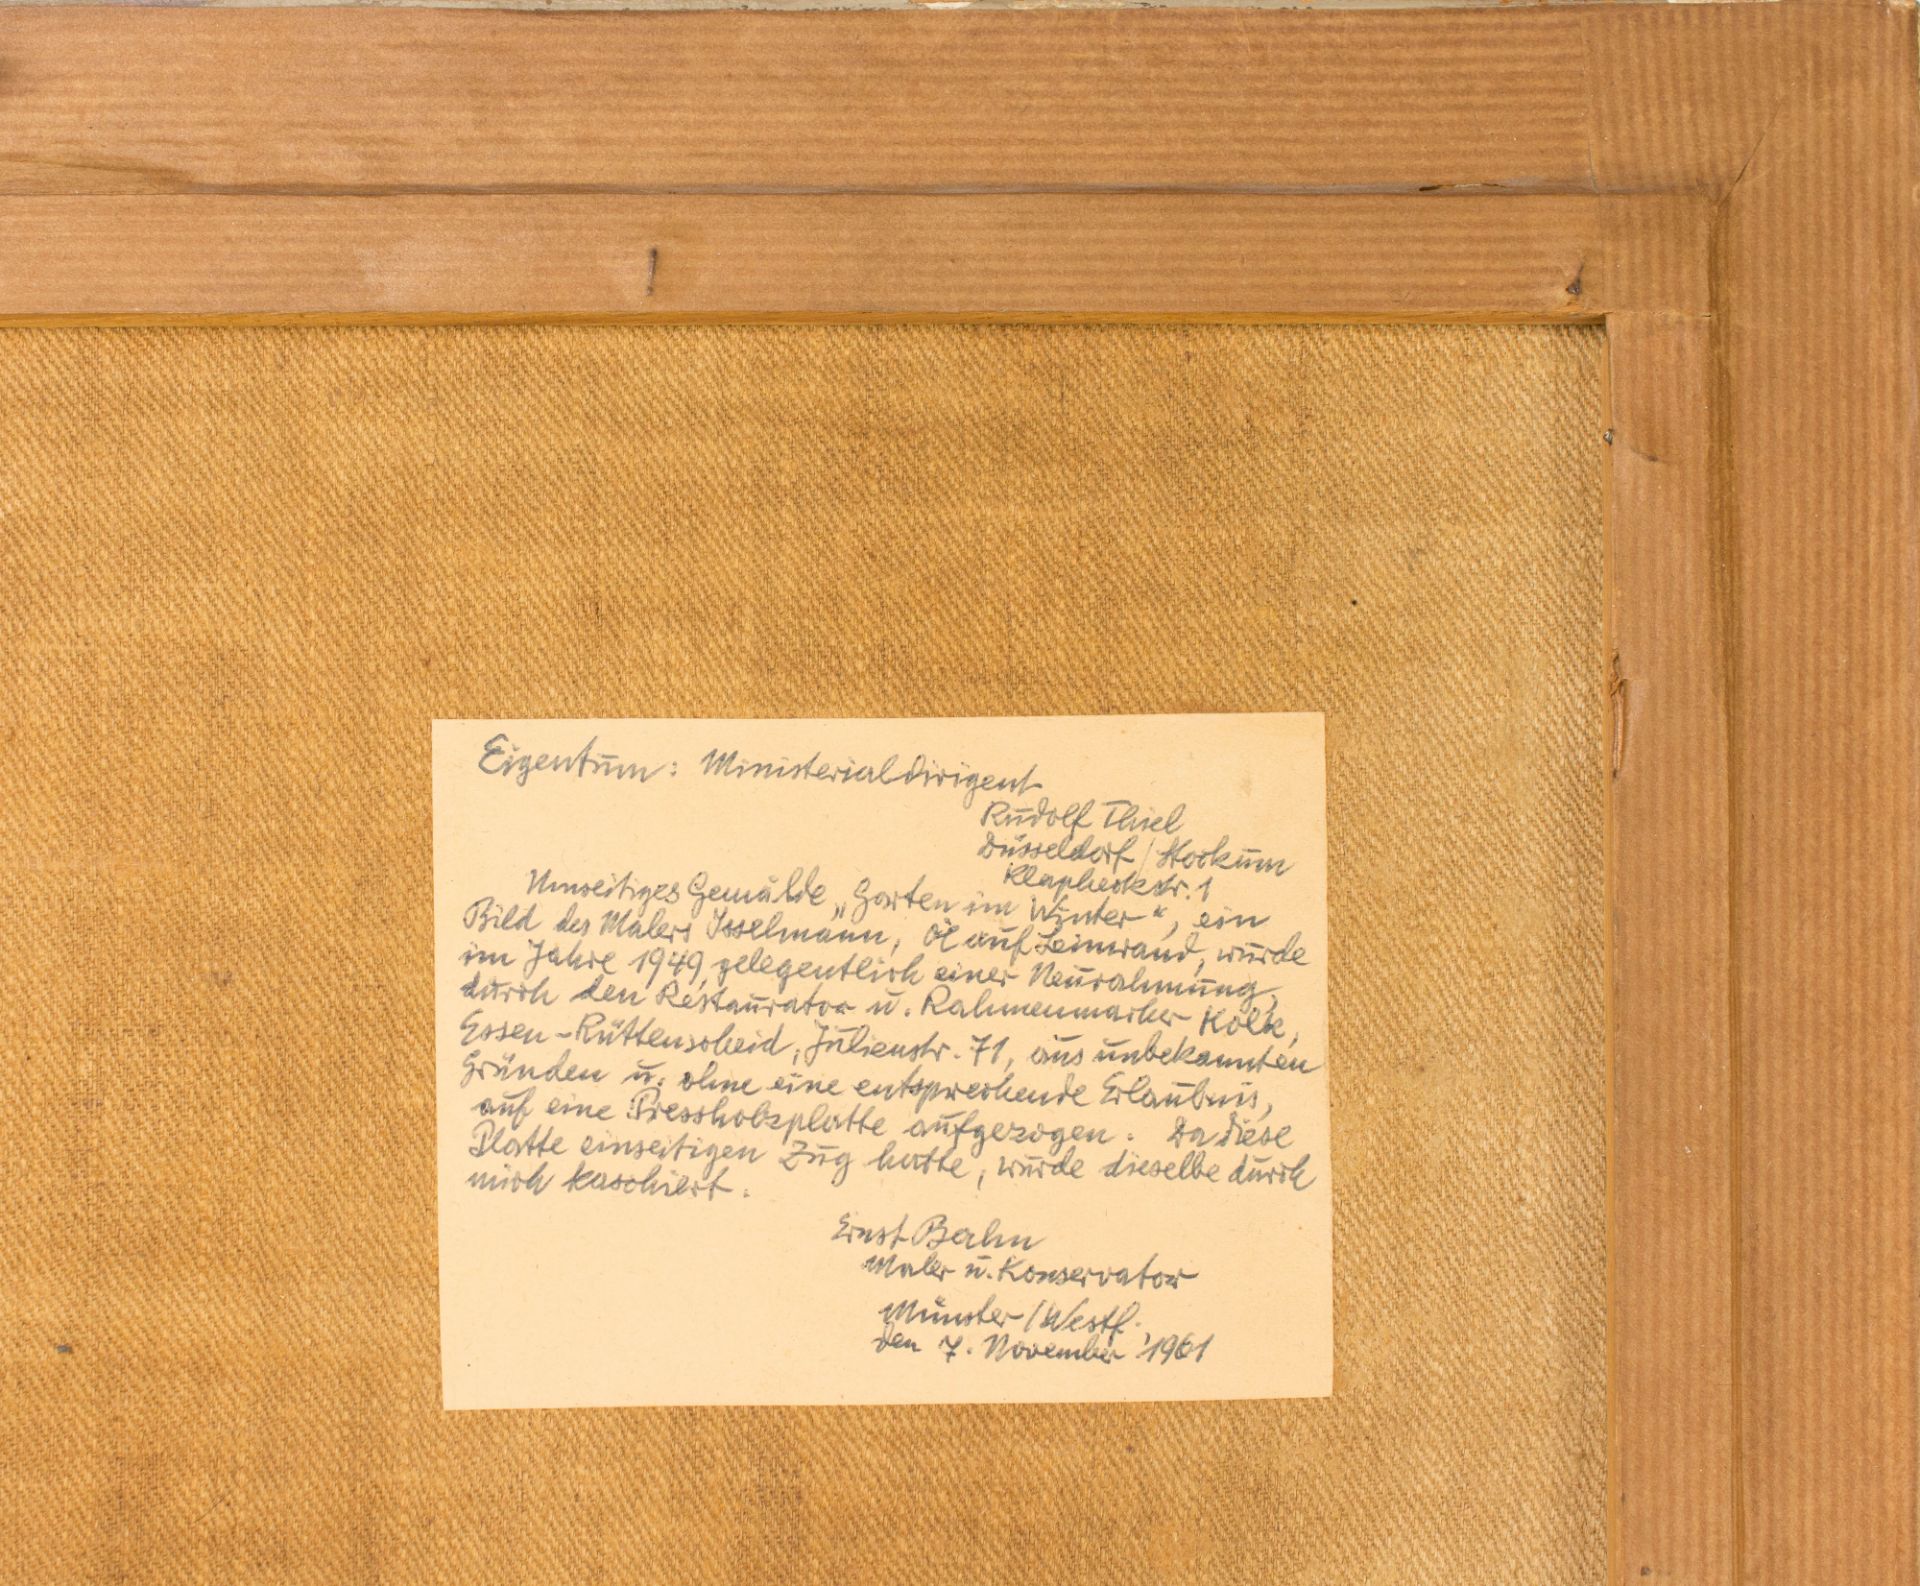 Eigentum: Ministerialdirigent
Rudolf Thiel
Düsseldorf / Stockum
Klapheckstr. 1
Umseitiges Gemälde „Garten im Winter“, ein
Bild des Malers Isselmann, Öl auf Leinwand, wurde
im Jahre 1949, gelegentlich einer Neurahmung,
durch den Restaurator u. Rahmenmacher
Essen-Rüttenscheid, Julienstr. 71, aus unbekannten
Gründen u. ohne eine entsprechende Erlaubnis,
auf eine Pressholzplatte aufgezogen. Da diese
Platte einseitigen Zug hatte, wurde dieselbe durch
mich kaschiert.
Ernst Bahn
Maler u. Konservator
Münster / Westf.,
den 7. November 1961